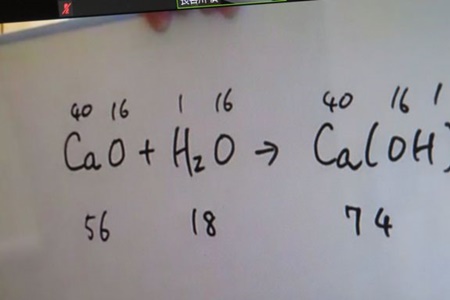 40 16 1 16 40 16 1
CaO + H₂O → Ca(OH)
56 18 74